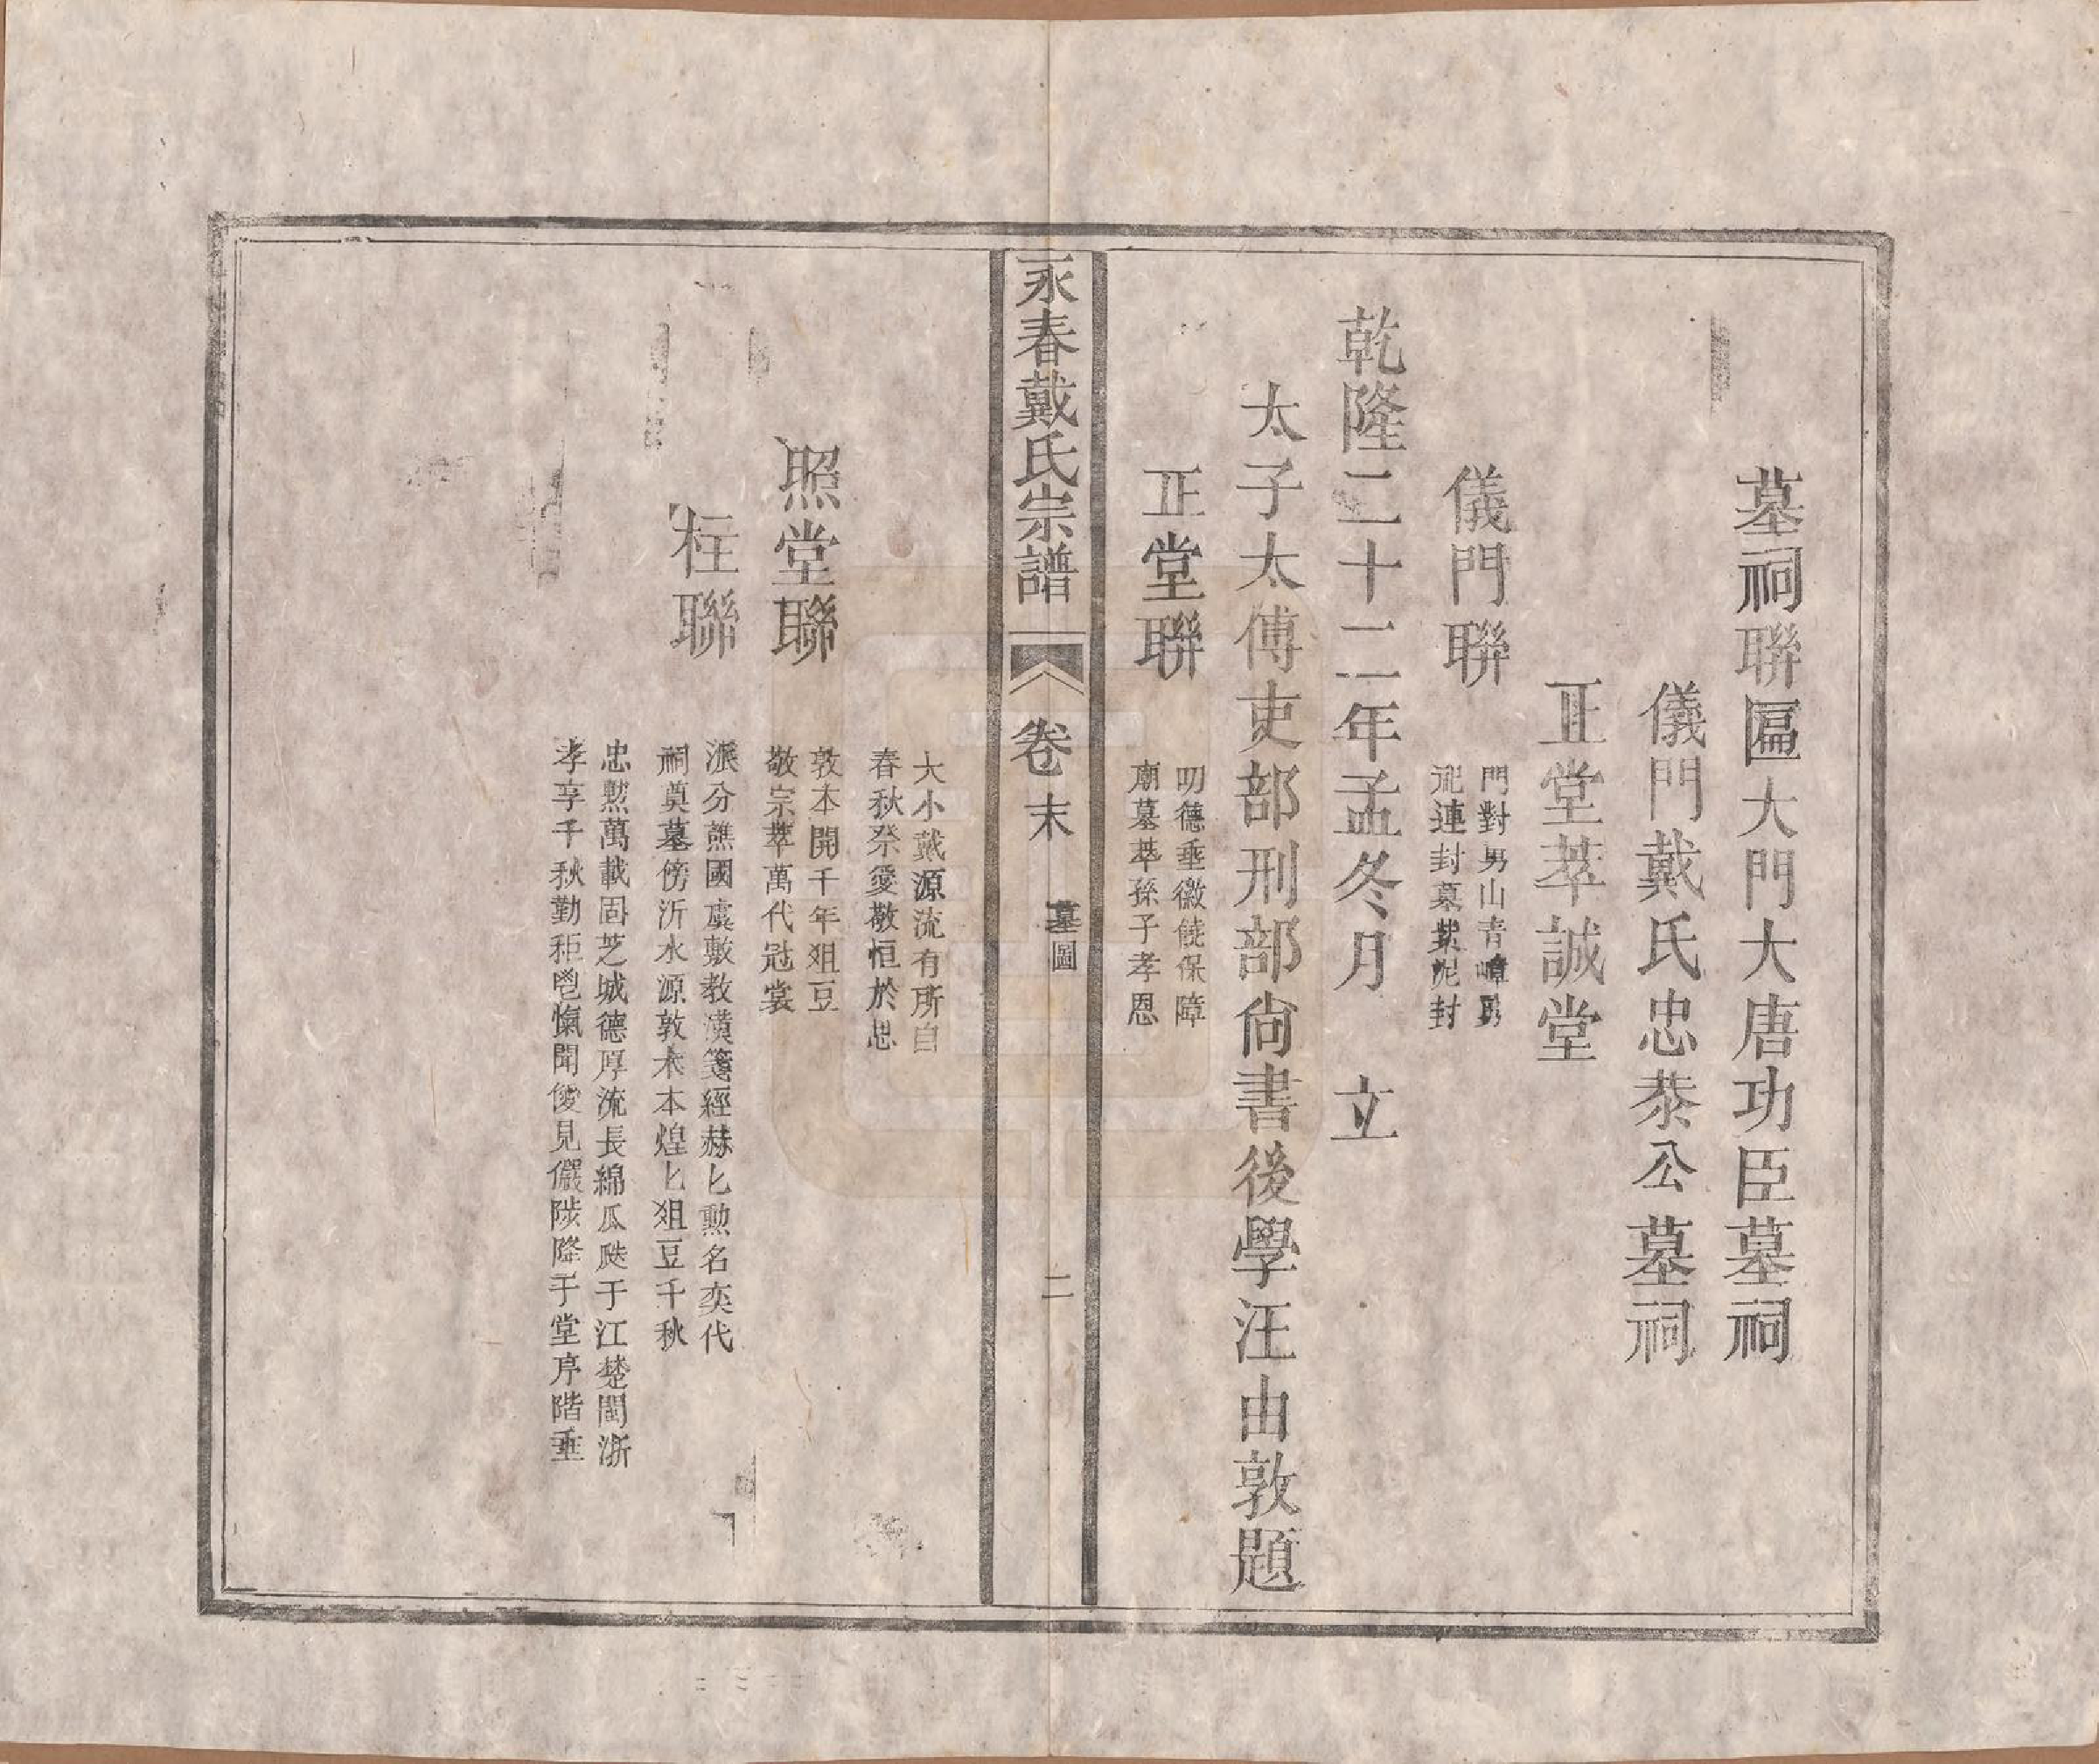 墓祠聯匾大門大唐功臣墓祠
儀門戴氏忠恭公墓祠
正堂萃誠堂
儀門聯
門對男山青嶂男
祀連封墓紫泥封
乾隆二十二年孟冬月　立
太子太傅吏部刑部尙書後學汪由敦題
正堂聯
明德垂徽饒保障
廟墓萃孫子孝恩
永春戴氏宗譜　卷末　墓圖　二
大小戴源流有所自
春秋祭愛敬恒於思
照堂聯
敦本開千年俎豆
敬宗萃萬代冠裳
柱聯
派分譙國虞敷教漢箋經赫匕勲名奕代
祠奠墓傍沂水源敦木本煌匕俎豆千秋
忠懃萬載固芝城德厚流長綿瓜瓞于江楚閩浙
孝享千秋勤秬鬯愾聞僾見儼陟降于堂序階垂